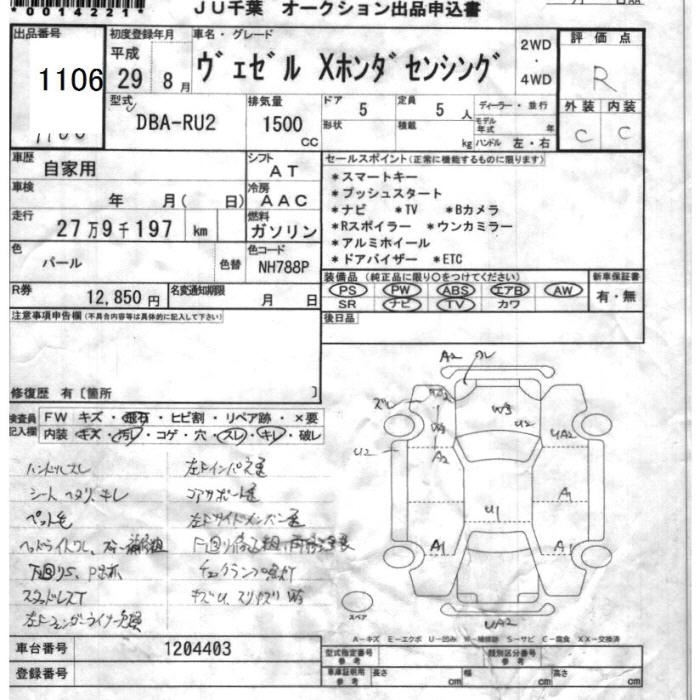 0014221*
JU千葉 オークション出品申込書
出品番号
1106
初度登録年月
平成
29年 8月
車名・グレード
ヴェゼル Xホンダセンシング
2WD
・
4WD
評価点
R
外装 内装
C C
型式
DBA-RU2
排気量
1500
CC
ドア
5
定員
5 人
形状
積載
kg
ディーラー・並行
モデル
年式 年
ハンドル 左・右
車歴
自家用
シフト
AT
車検
年 月( 日)
冷房
AAC
走行
27万9千197 km
燃料
ガソリン
色
パール
色替
色コード
NH788P
R券
12,850円
名変通知期限
月 日
セールスポイント(正常に機能するものに限ります)
*スマートキー
*プッシュスタート
*ナビ *TV *Bカメラ
*Rスポイラー *ウンカミラー
*アルミホイール
*ドアバイザー *ETC
装備品 (純正品に限り○をつけてください)
PS PW ABS エアB AW
SR ナビ TV カワ
新車保証書
有・無
後日品
注意事項申告欄(不具合内容等は具体的に記入して下さい)
修復歴 有[箇所 ]
検査員
記入欄
FW キズ・飛石・ヒビ割・リペア跡・×要
内装 キズ・汚レ・コゲ・穴・スレ・キレ・破レ
ハンドルスレ
シート ヘタリ、キレ
ペット毛
左インパネ歪
コアサポート歪
左サイドメンバー歪
A2
ズレ
W3
U2
A2
U2
UA2
A1
U1
A1
A1
UA2
スペア
A-キズ E-エクボ U-凹み W-補修跡 S-サビ C-腐食 XX-交換済
車台番号
1204403
登録番号
型式指定番号
参考
類別区分番号
参考
車庫証明用
参考
長さ cm
幅 cm
高さ cm